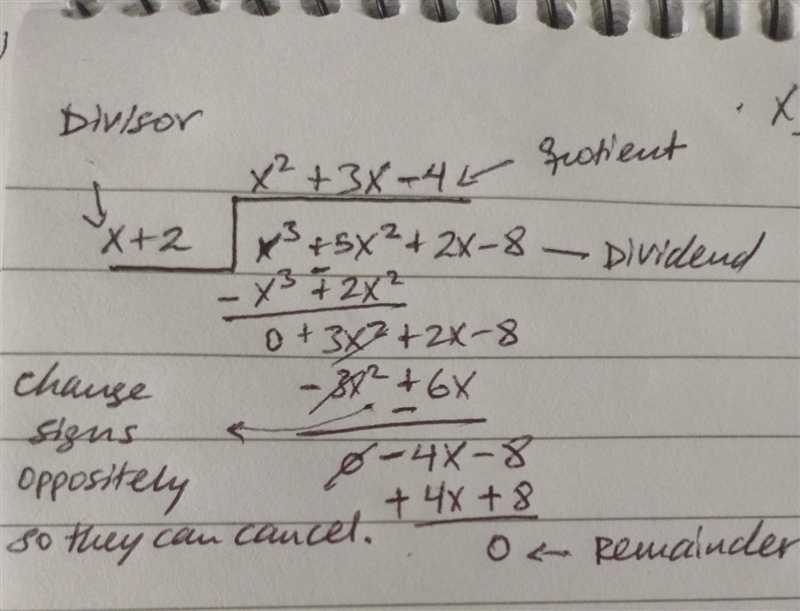 Divisor
x² + 3x - 4 ← Quotient
x + 2 x³ + 5x² + 2x - 8 — Dividend
- x³ + 2x²
-
0 + 3x² + 2x - 8
- 3x² + 6x
-
change
signs
oppositely
so they can cancel.
0 - 4x - 8
+ 4x + 8
0 ← Remainder